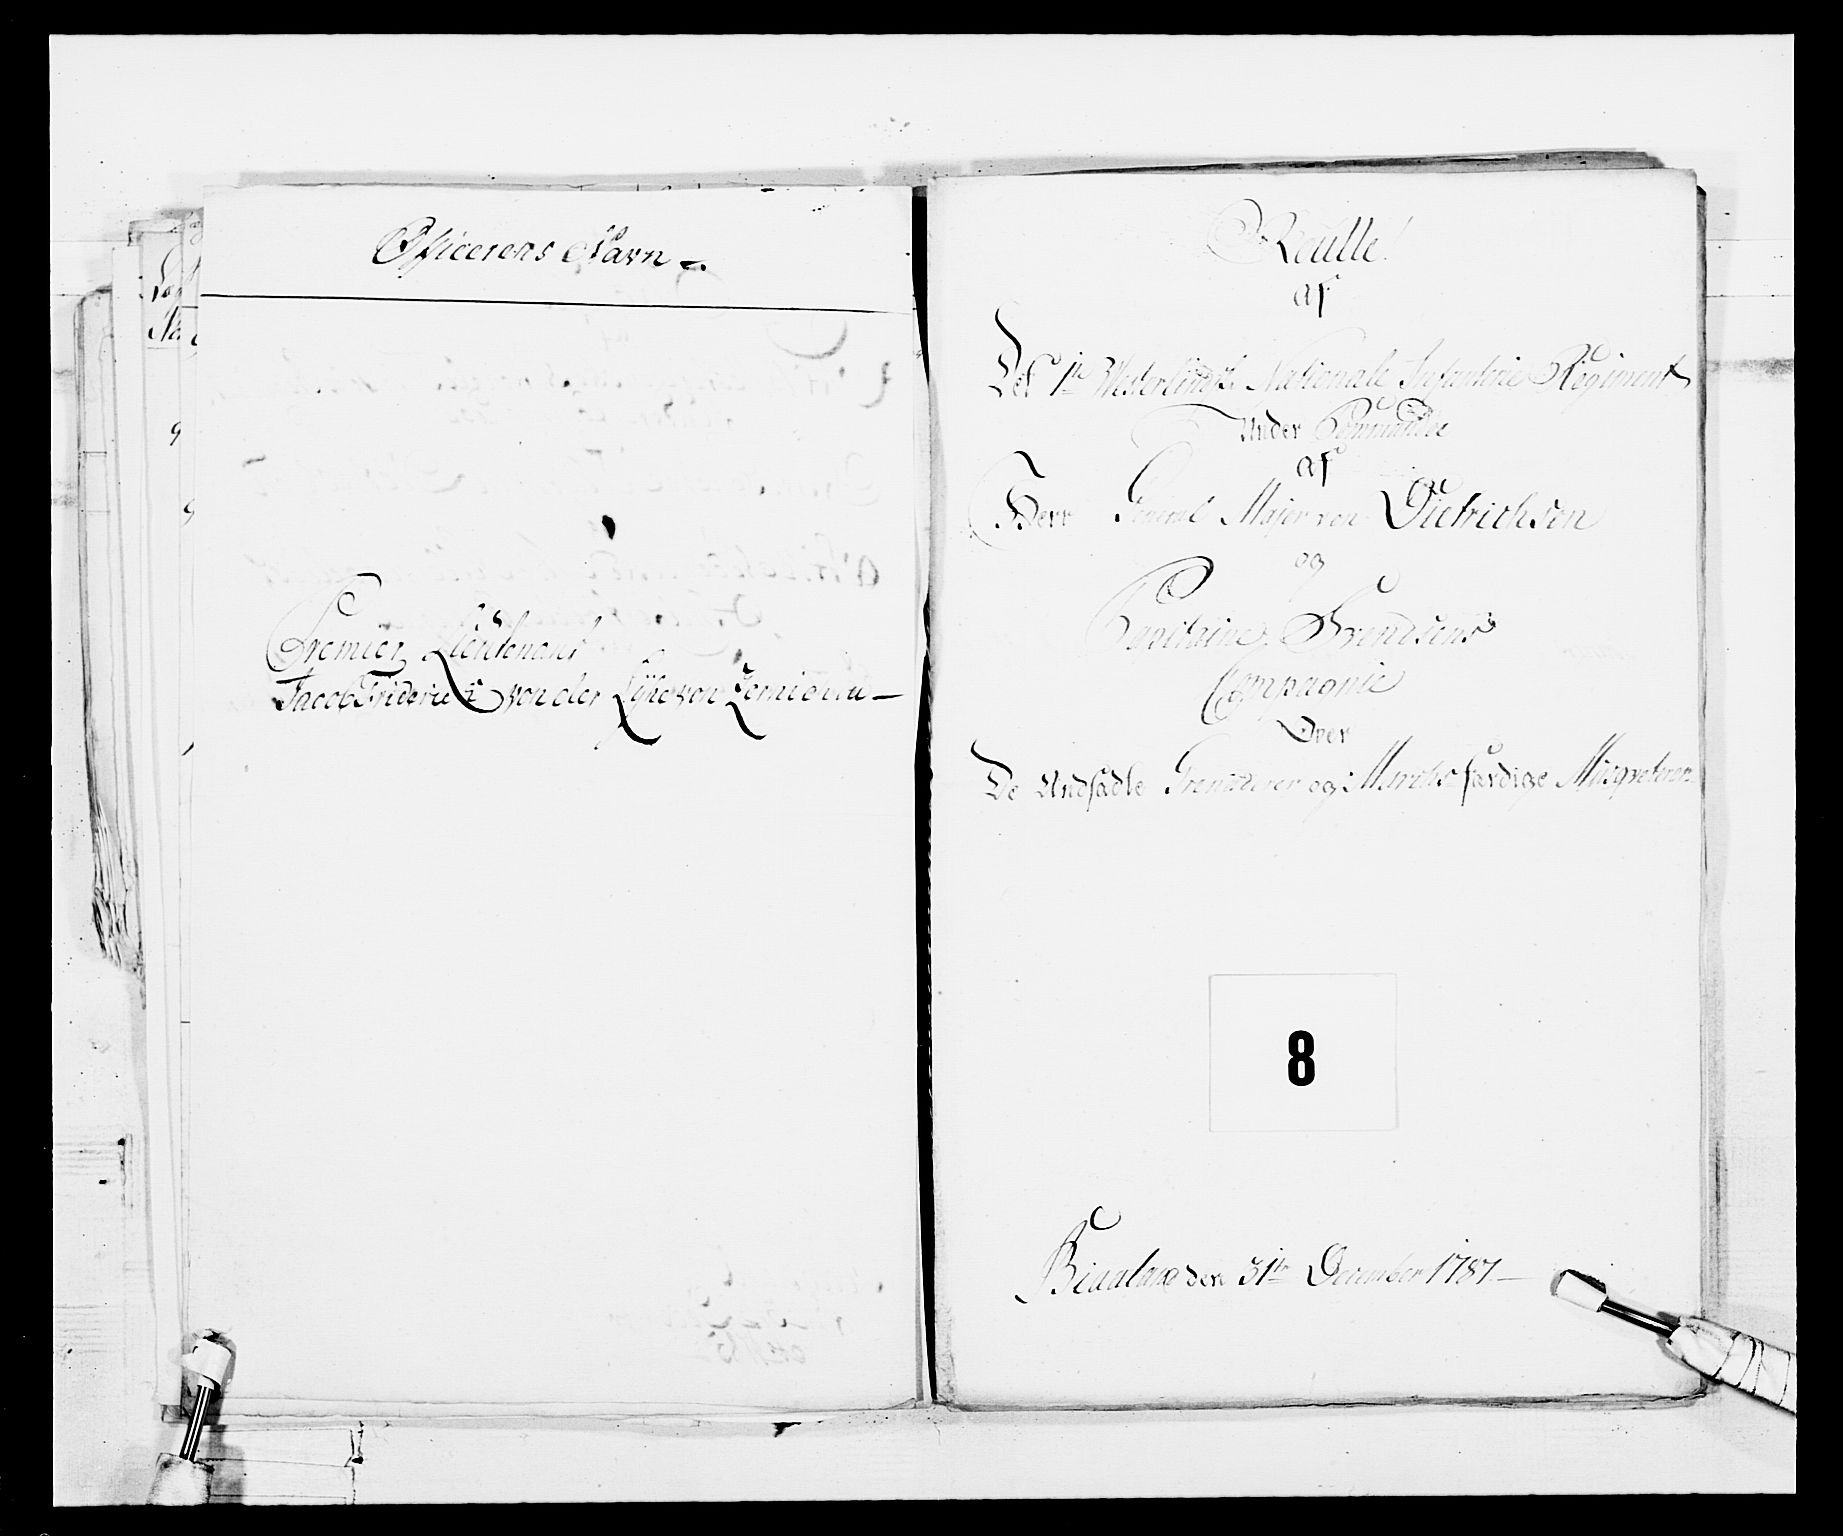 Officerens Navn
Premier Lieutenant
Jacob Friderich von der Lÿhe von
Roulle
af
Det 1te Westerlenske Nationale Infanterie Regiment
Under Commando
af
Herr General Major von Dietrichson
og
Capitaine Frendsens
Compagnie
Over
De Undsadte Grenaderer og Marchfærdige Musqveterer
8
den 31te December 1787